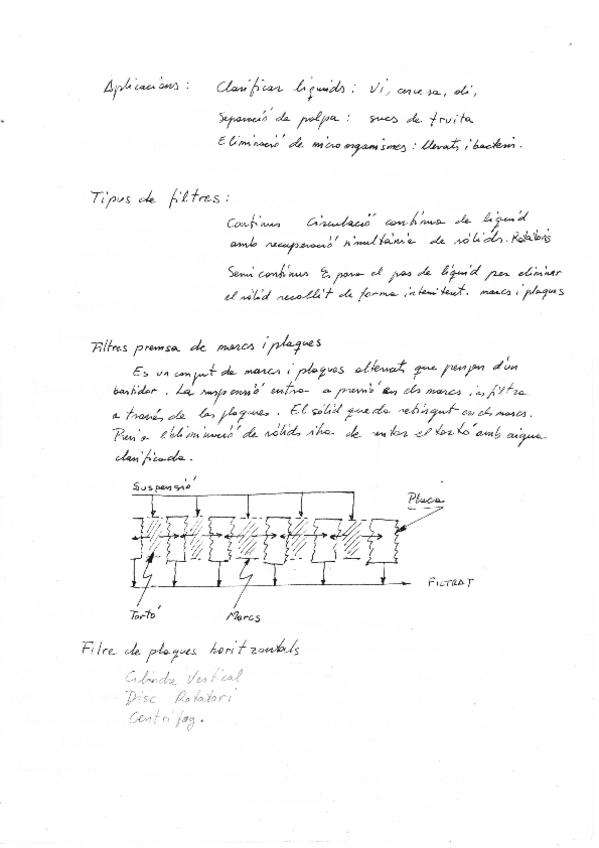 Aplicacions: Clarificar líquids: Vi, cervesa, oli,
Separació de polpa: sucs de fruita
Eliminació de microorganismes: llevats i bacteris.
Tipus de filtres:
Continus Circulació contínua de líquid
amb recuperació simultània de sòlids. Rotatoris
Semicontinus Es para el pas de líquid per eliminar
el sòlid recollit de forma intermitent. marcs i plaques
Filtres premsa de marcs i plaques
Es un conjunt de marcs i plaques alternats que penjen d'un
bastidor. La suspensió entra a pressió en els marcs i es filtra
a través de les plaques. El sòlid queda retingut en els marcs.
Previ a l'eliminació de sòlids s'ha de rentar el tortó amb aigua
clarificada.
Suspensió
Placa
FILTRAT
Tortó
Marcs
Filtre de plaques horitzontals
Cilindre Vertical
Disc Rotatori
Centrífug.